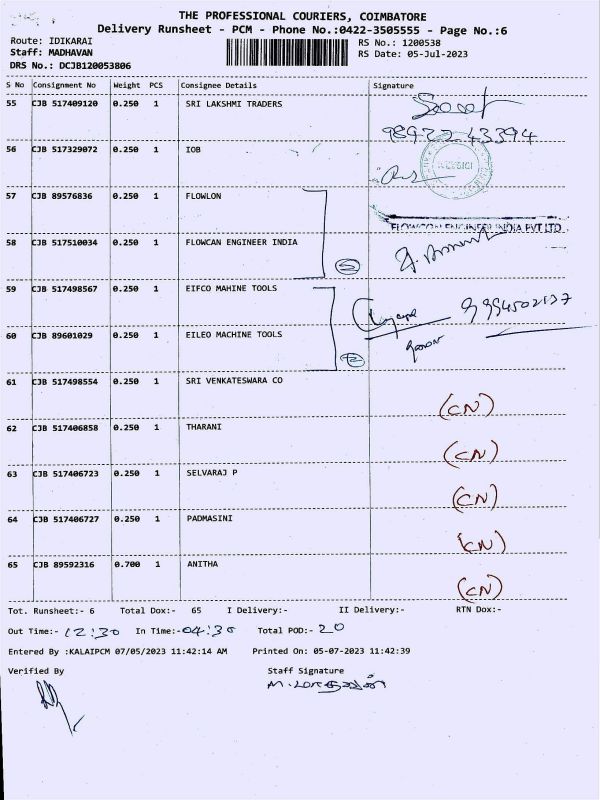 THE PROFESSIONAL COURIERS, COIMBATORE
Delivery Runsheet - PCM - Phone No.:0422-3505555 - Page No.:6
Route: IDIKARAI
RS No.: 1200538
Staff: MADHAVAN
RS Date: 05-Jul-2023
DRS No.: DCJB120053806
S No Consignment No Weight PCS Consignee Details Signature
55 CJB 517409120 0.250 1 SRI LAKSHMI TRADERS
98922 43394
56 CJB 517329072 0.250 1 IOB
57 CJB 89576836 0.250 1 FLOWLON
FLOWCON ENGINEER INDIA PVT LTD
58 CJB 517510034 0.250 1 FLOWCAN ENGINEER INDIA
59 CJB 517498567 0.250 1 EIFCO MAHINE TOOLS
60 CJB 89601029 0.250 1 EILEO MACHINE TOOLS
61 CJB 517498554 0.250 1 SRI VENKATESWARA CO
(CN)
62 CJB 517406858 0.250 1 THARANI
(CN)
63 CJB 517406723 0.250 1 SELVARAJ P
(CN)
64 CJB 517406727 0.250 1 PADMASINI
(CN)
65 CJB 89592316 0.700 1 ANITHA
(CN)
Tot. Runsheet:- 6 Total Dox:- 65 I Delivery:- II Delivery:- RTN Dox:-
Out Time:- 12:30 In Time:- 04:30 Total POD:- 20
Entered By :KALAIPCM 07/05/2023 11:42:14 AM Printed On: 05-07-2023 11:42:39
Verified By Staff Signature